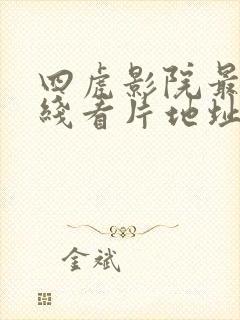 四虎影院最
线看片地址
金斌